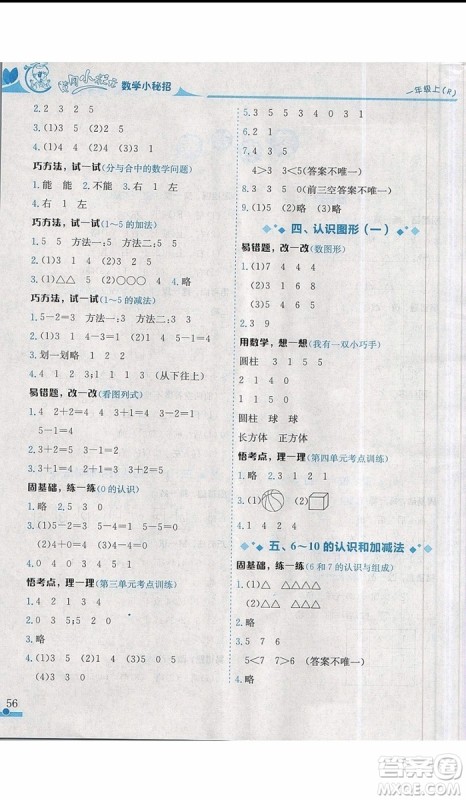 黄冈小状元 数学小秘招
一年级上(R)
2.2 3 2 5
3.(1)3 5 (2)2 5
巧方法，试一试(分与合中的数学问题)
1.能 能 2.不能 3.右 1 左
4.右 1 左
巧方法，试一试(1～5的加法)
1.5 5 方法一:5 方法二:5 5
2.(1)4 (2)5 5 3.3 4 5
4.(1)3 1 (2)1 4
5.(1)△△ (2)○○○ 4.略
巧方法，试一试(1～5的减法)
1.5－2＝3 5－4＝1
2.(1)3 1 (2)4 1
3.划一划略 1 2 2
4.4 1 2 3;1 1 1(从下往上)
易错题，改一改(看图列式)
1.4 2＋2＝4 3＋1＝4
5－1＝4
2.(1)3＋2＝5 (2)4－1＝3
固基础，练一练(0的认识)
1.略 2.5 3 0
3.(1)5－5＝0 (2)0＋3＝3
(3)4＋0＝4 (4)5－0＝5
4.0 4 0 3 0 2
悟考点，理一理(第三单元考点训练)
1.略 3 1 5 4
2.< > < = > <
3.略
4.(1)3 2 (2)1 4 5 (3)5 5 4
56
5.3 5 4 3 3 0 4 1
6.1 2
7.4 3 5
4＞3 3＜5(答案不唯一)
8.0 1 2 3(前三空答案不唯一)
9.(1)5 (2)略
四、认识图形(一)
易错题，改一改(数图形)
1.(1)7 4 4 4
(2)3 6 8 1
2.3 9
用数学，想一想(我有一双小巧手)
圆柱 3 1 5 5
2 1 4 0
1 1 5 0
圆柱 球 球
长方体 正方体
悟考点，理一理(第四单元考点训练)
1.略 2.3 1 2 1
3.(1) (2)
4.1 4 2 4
五、6～10的认识和加减法
固基础，练一练(6和7的认识与组成)
1.(1)△ △△△△
(2)△△△ △△△△
2.略
3.5 7 6
5＜7 7＞6 (答案不唯一)
4.略
答案圈
MXQE.COM